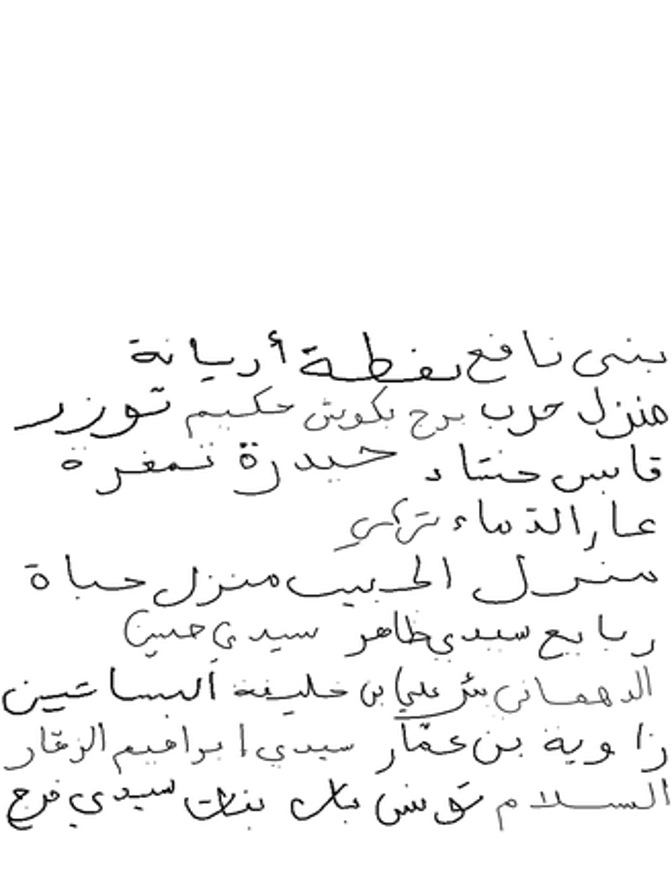 بني نافع نفطة أريانة
منزل حرب برج بكوش حكيم توزر
قابس خنشاء حيدرة تمغرة
عار الدماء
منزل الحبيب منزل حياة
ربايع سيدي ظاهر سيدي حسين
الدهماني بئر علي بن خليفة البساتين
زاوية بن عمّار سيدي ابراهيم الزقار
السلام تونس باب بنات سيدي فرج